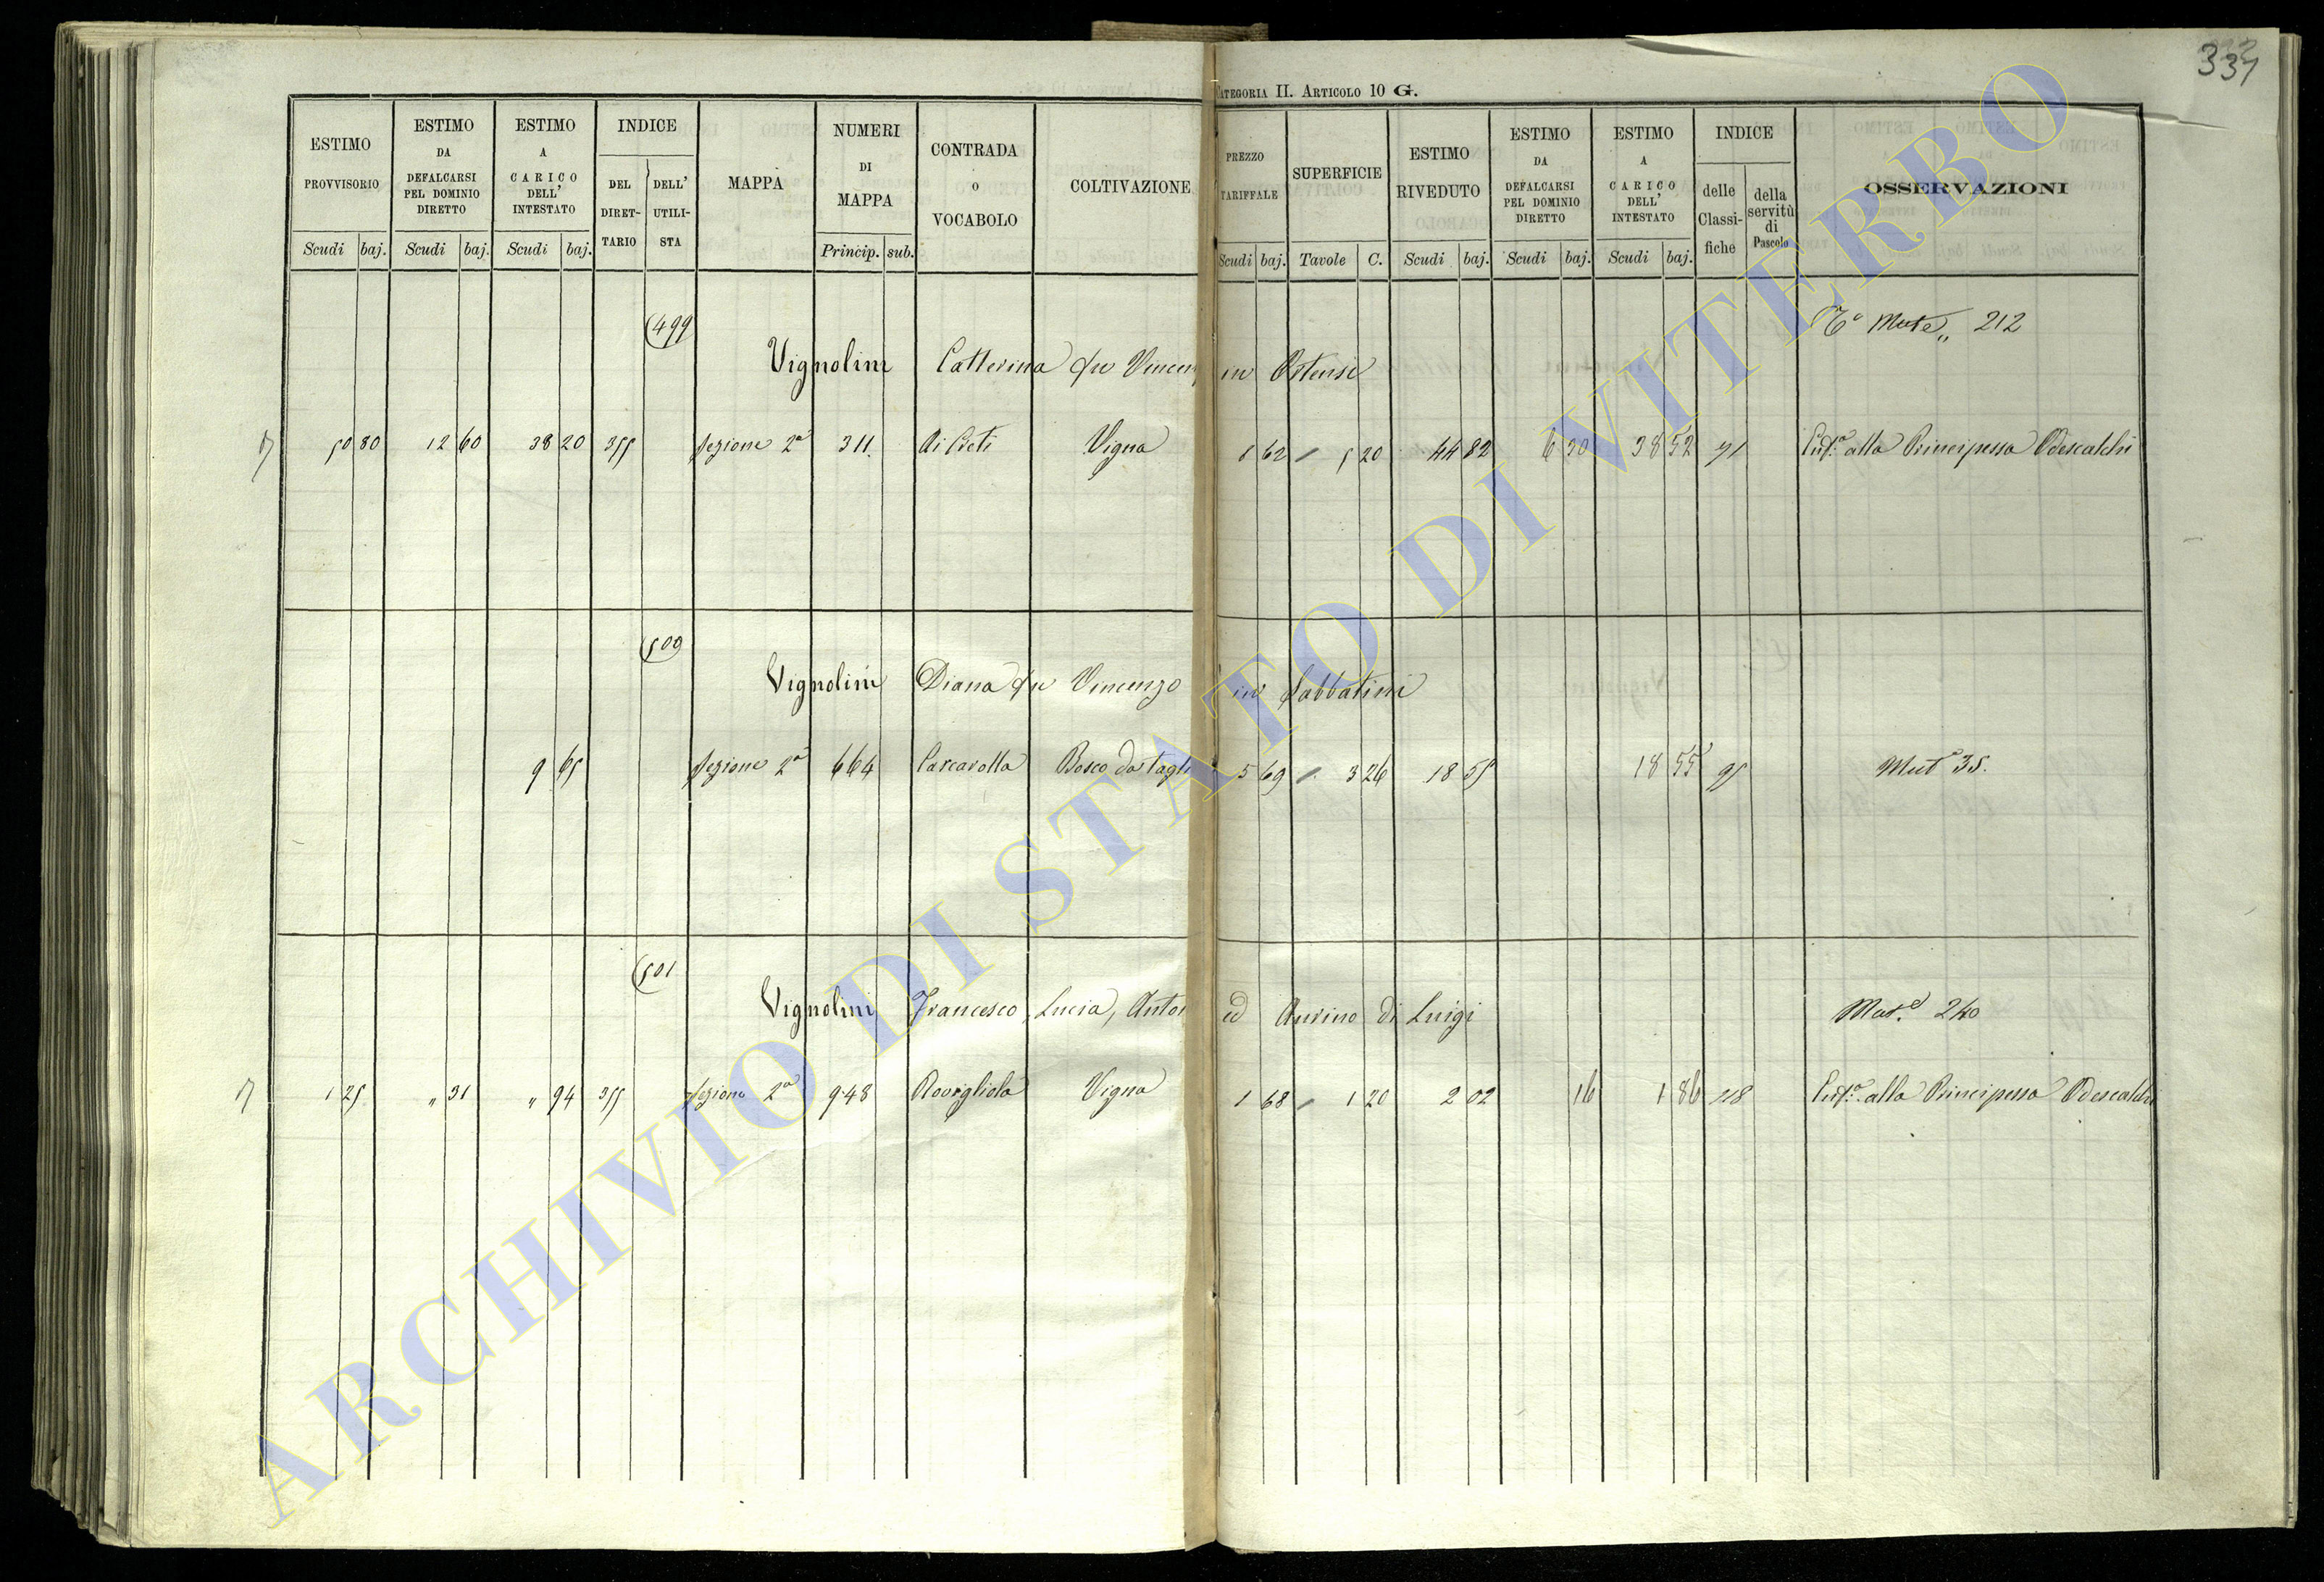 337
CATEGORIA II. ARTICOLO 10 G.
ESTIMO PROVVISORIO Scudi baj.
ESTIMO DA DEFALCARSI PEL DOMINIO DIRETTO Scudi baj.
ESTIMO A CARICO DELL' INTESTATO Scudi baj.
INDICE DEL DIRET-TARIO DELL' UTILI-STA
MAPPA
NUMERI DI MAPPA Princip. sub.
CONTRADA O VOCABOLO
COLTIVAZIONE
PREZZO TARIFFALE Scudi baj.
SUPERFICIE Tavole C.
ESTIMO RIVEDUTO Scudi baj.
ESTIMO DA DEFALCARSI PEL DOMINIO DIRETTO Scudi baj.
ESTIMO A CARICO DELL' INTESTATO Scudi baj.
INDICE delle Classi-fiche della servitù di Pascolo
OSSERVAZIONI
499
212
Vignolini Catterina fu Vincen in Ostensi
50 80 12 60 38 20 355 Sezione 2a 311 Vigna 8 62 5 20 44 82 6 30 38 52 71 alla Principessa Odescalchi
500
Vignolini Diana fu Vincenzo in Sabbatini
9 65 Sezione 2a 664 Carcarolla Bosco da tagli 5 69 3 26 18 55 18 55 95 Mut 35.
501
Vignolini Francesco, Lucia, Anton ed Aurino di Luigi
Mut. 240
1 25 " 31 " 94 355 Sezione 2a 948 Rovigliola Vigna 1 68 1 20 2 02 16 1 86 78 alla Principessa Odescalchi
ARCHIVIO DI STATO DI VITERBO